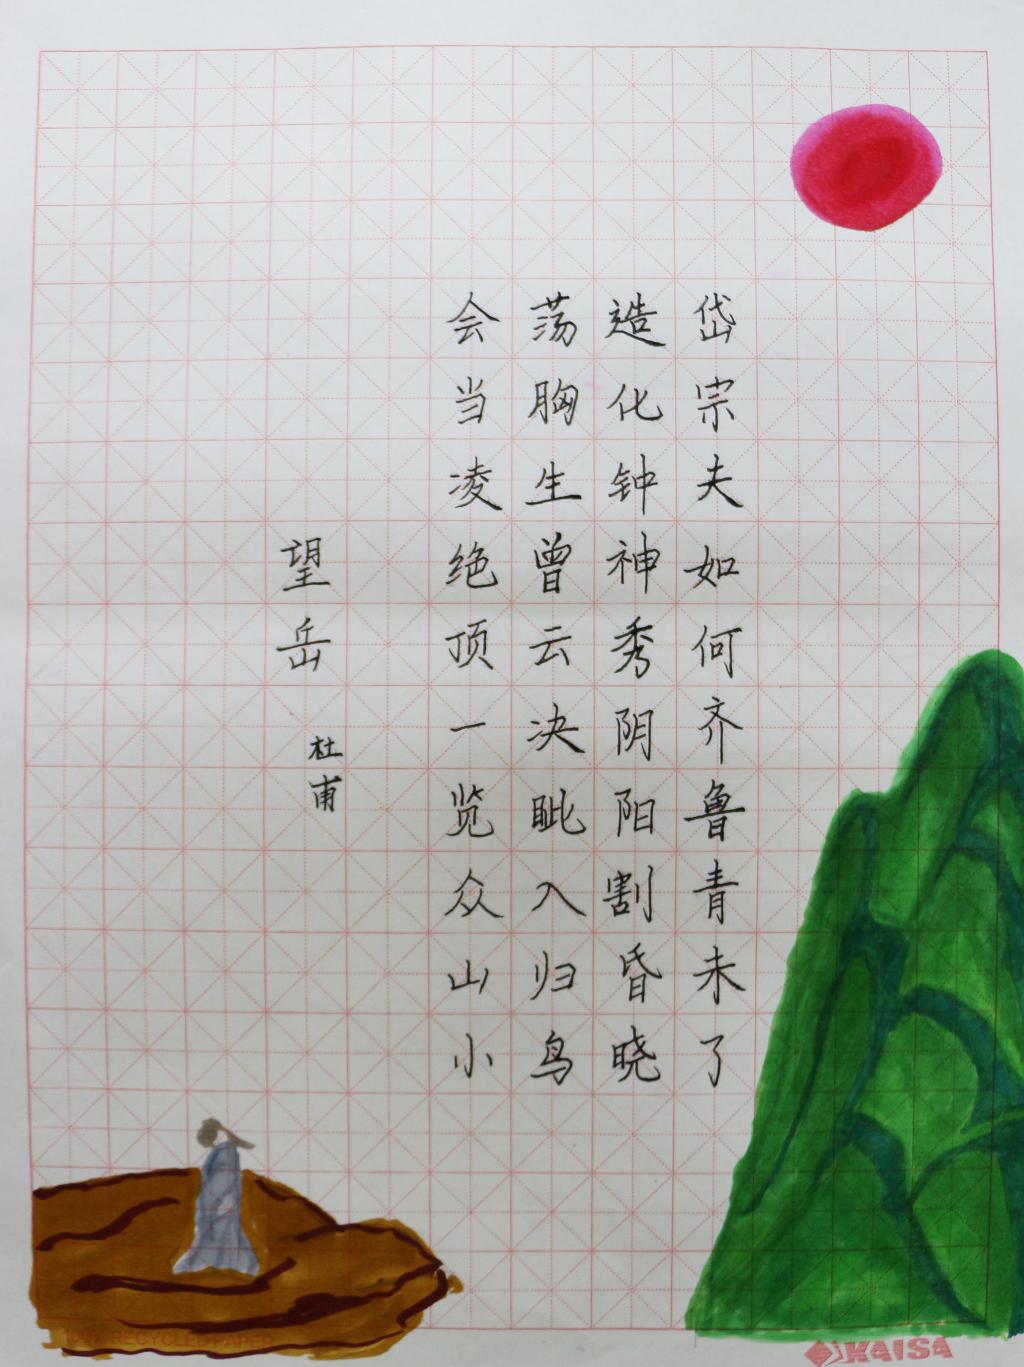 岱宗夫如何齐鲁青未了
造化钟神秀阴阳割昏晓
荡胸生曾云决眦入归鸟
会当凌绝顶一览众山小
望岳
杜甫
100% RECYCLED PAPER
KAISA